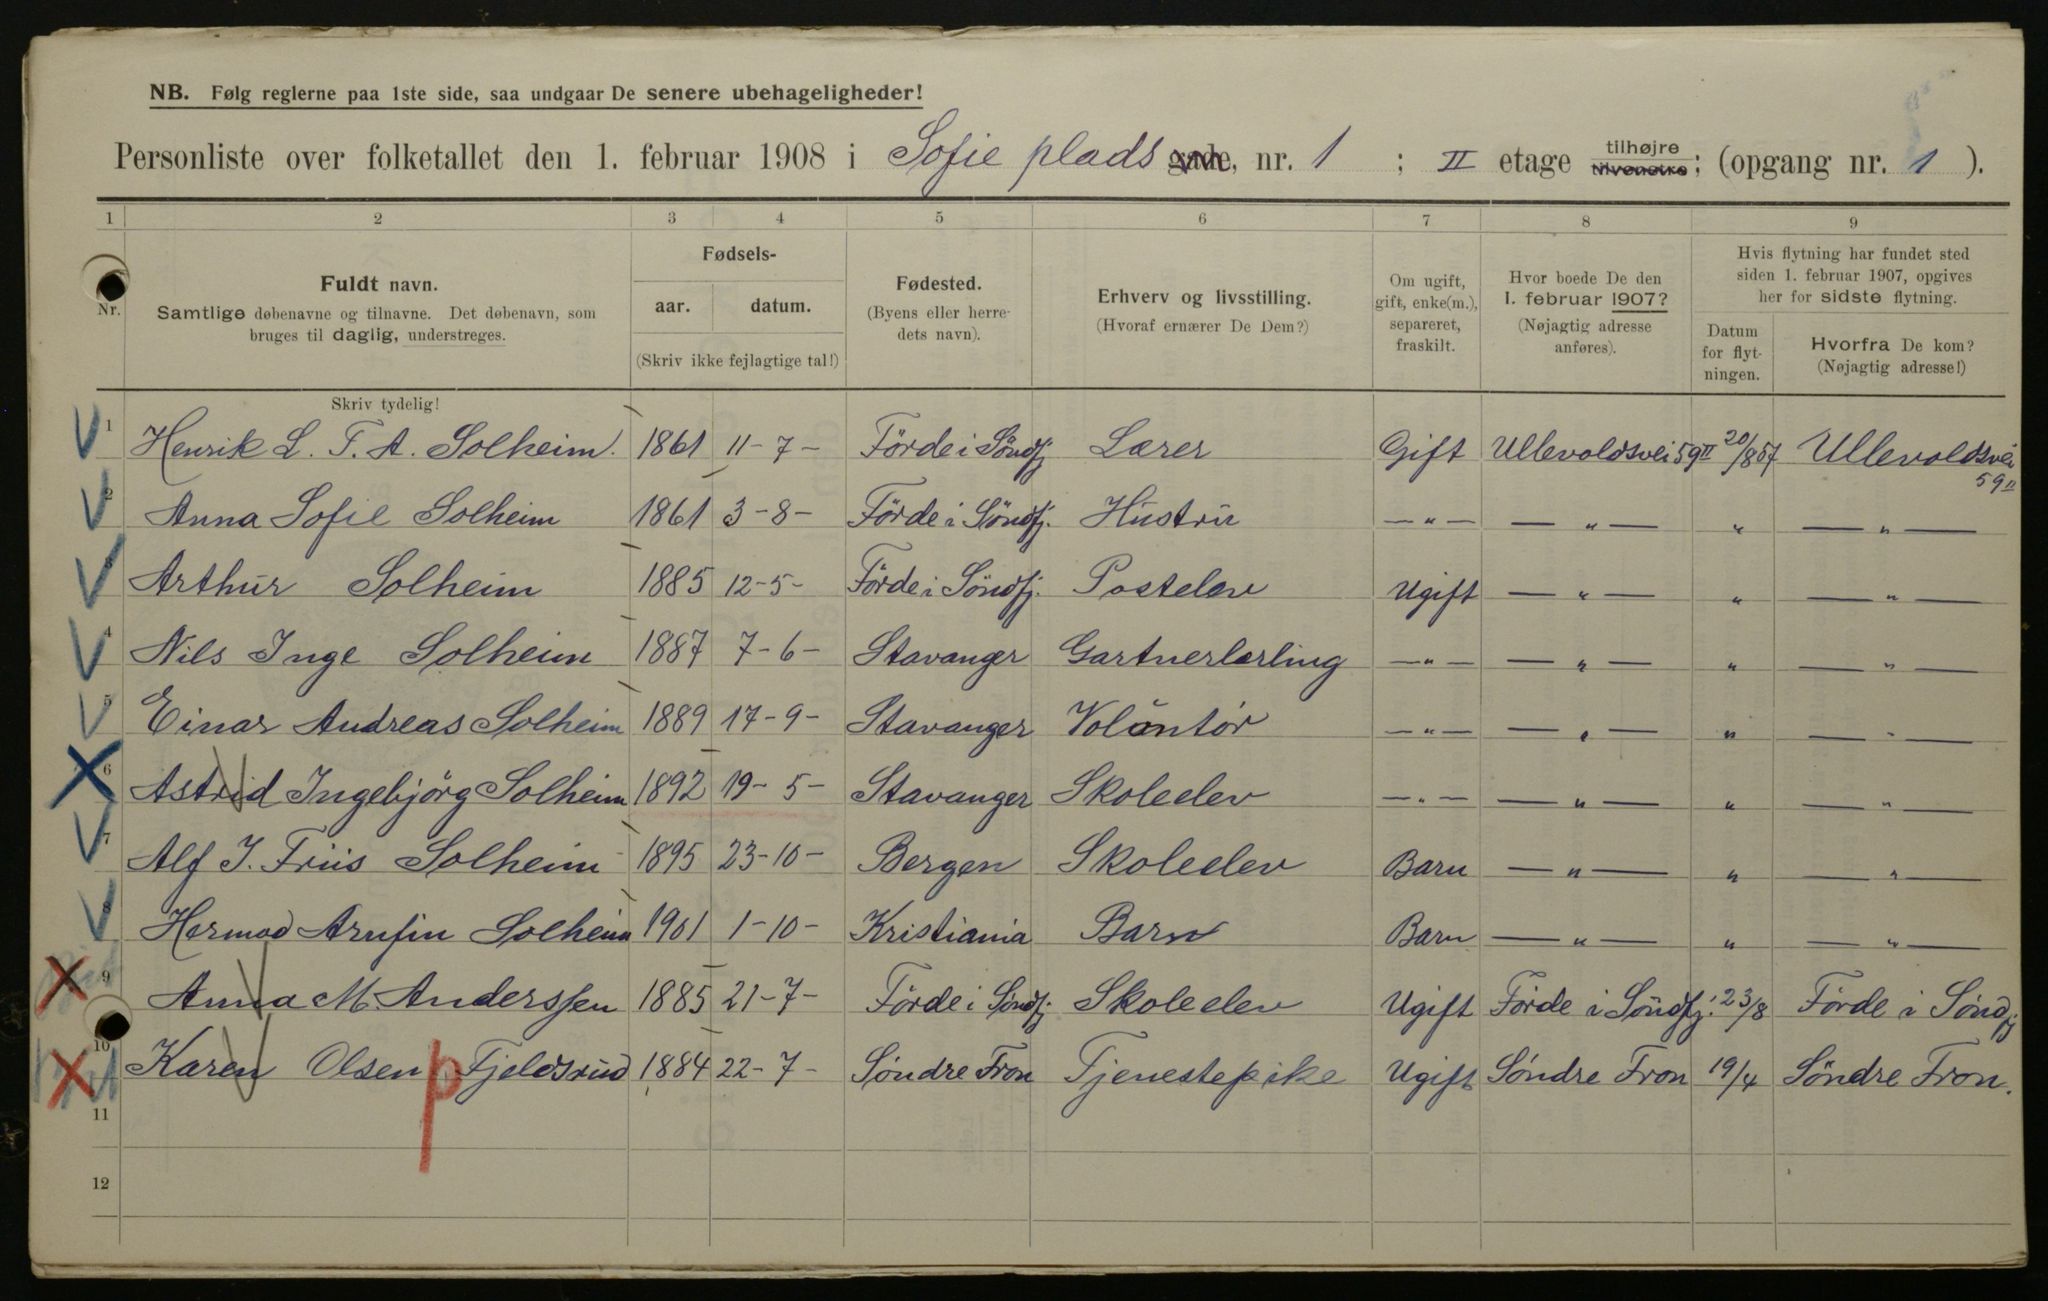 NB. Følg reglerne paa 1ste side, saa undgaar De senere ubehageligheder!
Personliste over folketallet den 1. februar 1908 i Sofie plads gade, nr. 1 ; II etage tilhøjre tilvenstre; (opgang nr. 1 ).
1 2 3 4 5 6 7 8 9
Nr.
Fuldt navn.
Samtlige døbenavne og tilnavne. Det døbenavn, som
bruges til daglig, understreges.
Fødsels-
aar. datum.
(Skriv ikke fejlagtige tal!)
Fødested.
(Byens eller herre-
dets navn).
Erhverv og livsstilling.
(Hvoraf ernærer De Dem?)
Om ugift,
gift, enke(m.),
separeret,
fraskilt.
Hvor boede De den
1. februar 1907?
(Nøjagtig adresse
anføres).
Hvis flytning har fundet sted
siden 1. februar 1907, opgives
her for sidste flytning.
Datum
for flyt-
ningen.
Hvorfra De kom?
(Nøjagtig adresse!)
Skriv tydelig!
1 Henrik L. F. A. Solheim. 1861 11-7- Förde i Söndfj Lærer Gift Ullevoldsvei 59 II 20/8 07 Ullevoldsvei
59 II
2 Anna Sofie Solheim 1861 3-8- Förde i Söndfj. Hustru —"— — " — " — " —
3 Arthur Solheim 1885 12-5- Förde i Söndfj. Postelev Ugift — " — " — " —
4 Nils Inge Solheim 1887 7-6- Stavanger Gartnerlærling —"— — " — " — " —
5 Einar Andreas Solheim 1889 17-9- Stavanger Volontör —"— — " — " — " —
6 Astrid Ingebjörg Solheim 1892 19-5- Stavanger Skoleelev —"— — " — " — " —
7 Alf J. Friis Solheim 1895 23-10- Bergen Skoleelev Barn — " — " — " —
8 Hermod Arnfin Solheim 1901 1-10- Kristiania Barn Barn — " — " — " —
9 Anna M. Anderssen 1885 21-7- Förde i Söndfj Skoleelev Ugift Förde i Söndfj. 23/8 Förde i Söndfj
10 Karen Olsen p Fjeldsrud 1884 22-7- Søndre Fron Tjenestepike Ugift Søndre Fron 19/4 Søndre Fron.
11
12